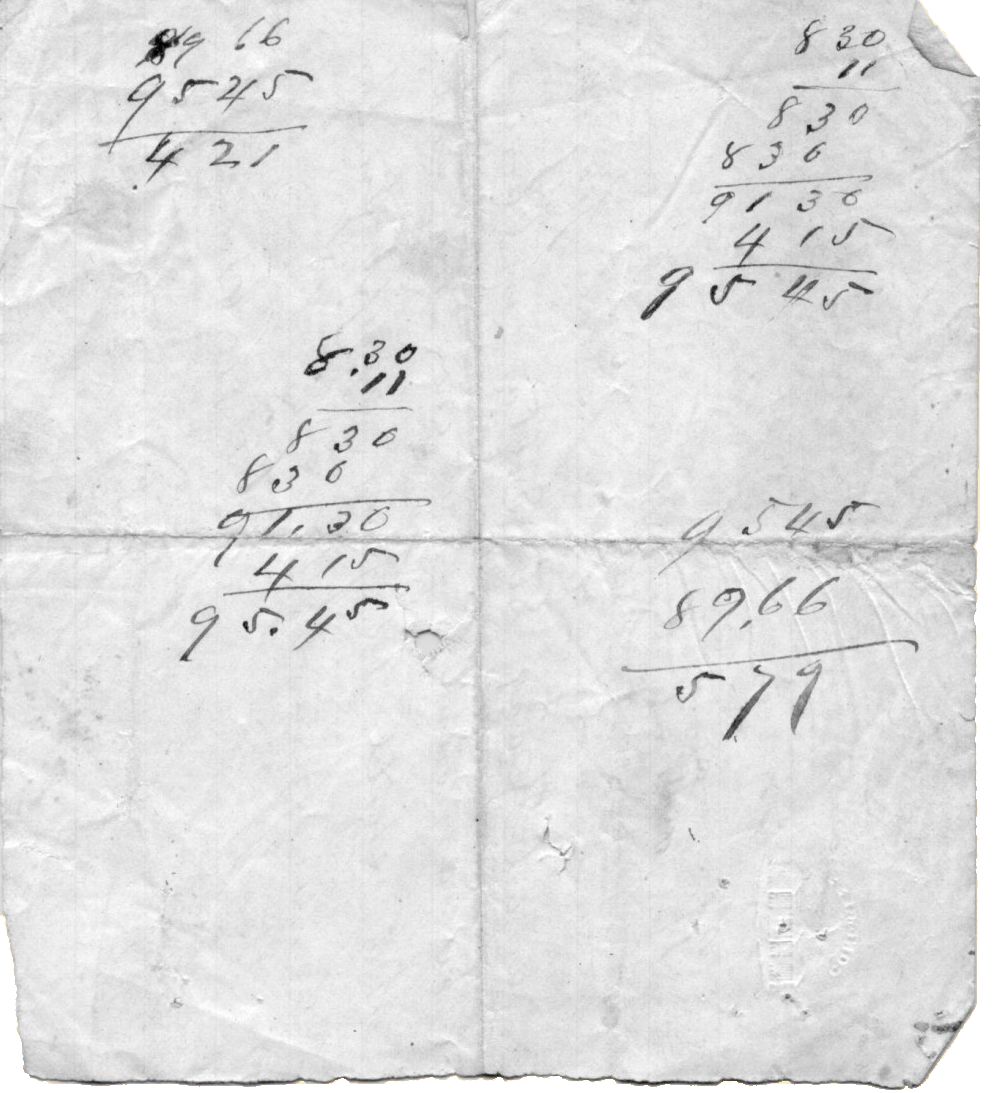 89 66
9545
421
830
11
830
830
9130
415
9545
8.30
11
830
830
91.30
415
95.45
9545
89.66
579